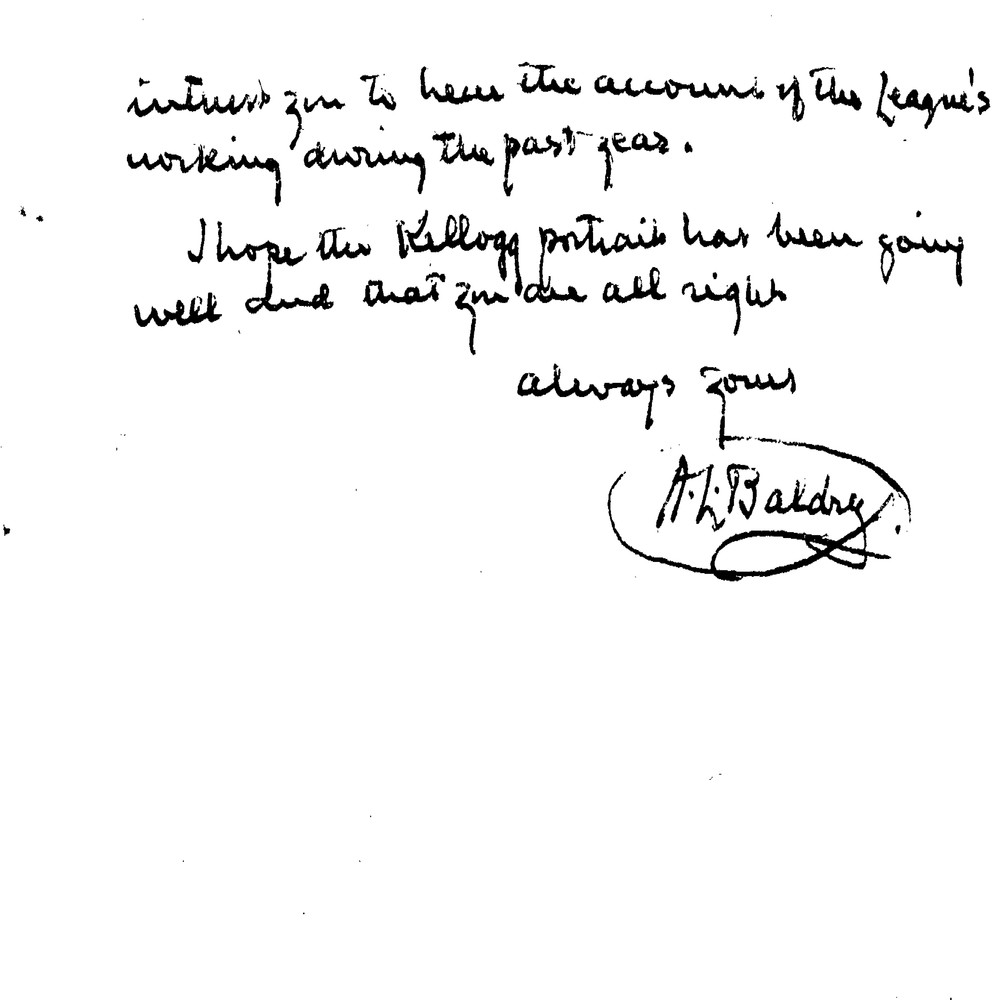 interest you to hear the account of the League's
working during the past year.
I hope the Kellogg portrait has been going
well and that you are all right
always yours
A. L. Baldry.